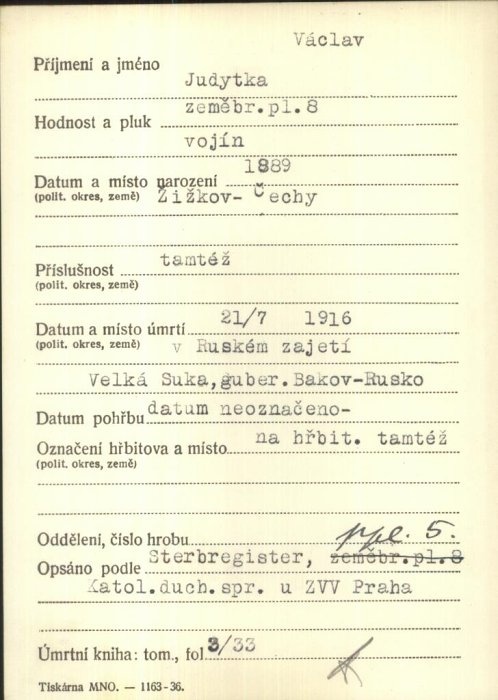 Václav
Příjmení a jméno
Judytka
zeměbr.pl.8
Hodnost a pluk
vojín
1889
Datum a místo narození
(polit. okres, země) Žižkov- Čechy
tamtéž
Příslušnost
(polit. okres, země)
21/7 1916
Datum a místo úmrtí
(polit. okres, země) v Ruském zajetí
Velká Suka,guber.Bakov-Rusko
Datum pohřbu datum neoznačeno-
Označení hřbitova a místo na hřbit. tamtéž
(polit. okres, země)
Oddělení, číslo hrobu ppl. 5.
Opsáno podle Sterbregister, zeměbr.pl.8
Katol.duch.spr. u ZVV Praha
Úmrtní kniha: tom., fol 3/33
Tiskárna MNO. — 1163-36.